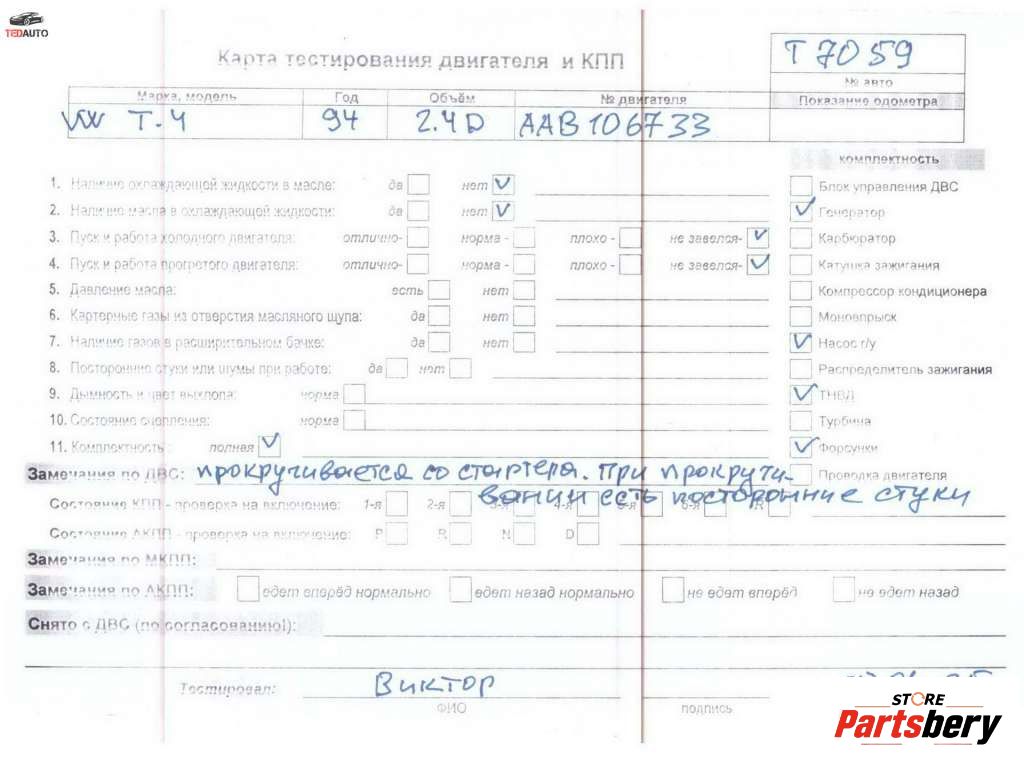 TEDAUTO
Карта тестирования двигателя и КПП
T 7059
№ авто
Марка, модель Год Объём № двигателя Показание одометра
VW T-4 94 2.4D AAB106733
комплектность
1. Наличие охлаждающей жидкости в масле: да нет ✓ Блок управления ДВС
2. Наличие масла в охлаждающей жидкости: да нет ✓ ✓ Генератор
3. Пуск и работа холодного двигателя: отлично- норма - плохо - не завелся- ✓ Карбюратор
4. Пуск и работа прогретого двигателя: отлично- норма - плохо - не завелся- ✓ Катушка зажигания
5. Давление масла: есть нет Компрессор кондиционера
6. Картерные газы из отверстия масляного щупа: да нет Моновпрыск
7. Наличие газов в расширительном бачке: да нет ✓ Насос г/у
8. Посторонние стуки или шумы при работе: да нет Распределитель зажигания
9. Дымность и цвет выхлопа: норма ✓ ТНВД
10. Состояние сцепления: норма Турбина
11. Комплектность : полная ✓ ✓ Форсунки
Замечания по ДВС: прокручивается со стартера. При прокручи- Проводка двигателя
вании есть посторонние стуки
Состояние КПП - проверка на включение: 1-я 2-я 3-я 4-я 5-я 6-я R
Состояние АКПП - проверка на включение: P R N D
Замечания по МКПП:
Замечания по АКПП: едет вперёд нормально едет назад нормально не едет вперёд не едет назад
Снято с ДВС (по согласованию!):
Тестировал: Виктор
ФИО подпись
STORE
Partsbery